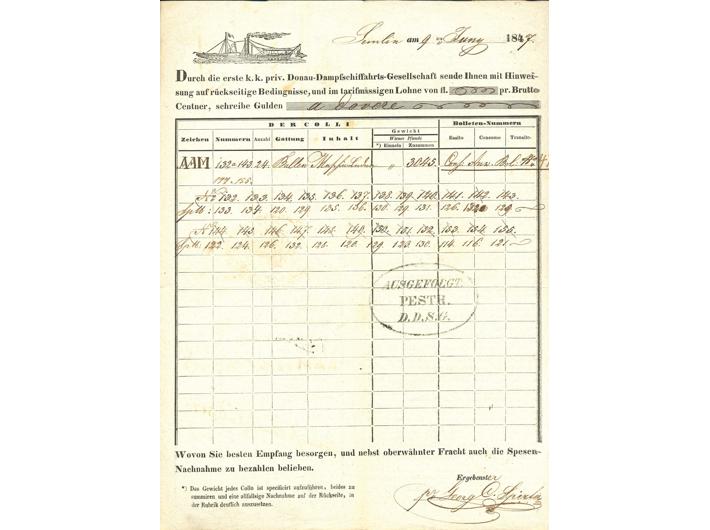 Semlin am 9 Juny 1847.
Durch die erste k. k. priv. Donau-Dampfschiffahrts-Gesellschaft sende Ihnen mit Hinwei-
sung auf rückseitige Bedingnisse, und im tarifmässigen Lohne von fl. pr. Brutto
Centner, schreibe Gulden a dovere
DER COLLI Bolleten-Nummern
Gewicht
Wiener Pfunde
Zeichen Nummern Anzahl Gattung Inhalt *) Einzeln Zusammen Essito Consumo Transito
AAM 132 a 143 24. Ballen " 3045.
144 - 155.
No 132. 133. 134. 135. 136. 137. 138. 139. 140. 141. 142. 143.
133. 134. 120. 129. 135. 136. 130. 129. 131. 126. 129
No 144 145. 146. 147. 148. 149. 150. 151. 152. 153. 154. 155.
122. 124. 126. 132. 121. 120. 129. 123. 130. 114. 116. 121
AUSGEFOLGT.
PESTH.
D.D.S.G.
Wovon Sie besten Empfang besorgen, und nebst oberwähnter Fracht auch die Spesen-
Nachnahme zu bezahlen belieben.
Ergebenster
*) Das Gewicht jedes Collo ist specificirt aufzuführen, beides zu
summiren und eine allfällige Nachnahme auf der Rückseite, in
der Rubrik deutlich auszusetzen.
pr Georg C. Spirta